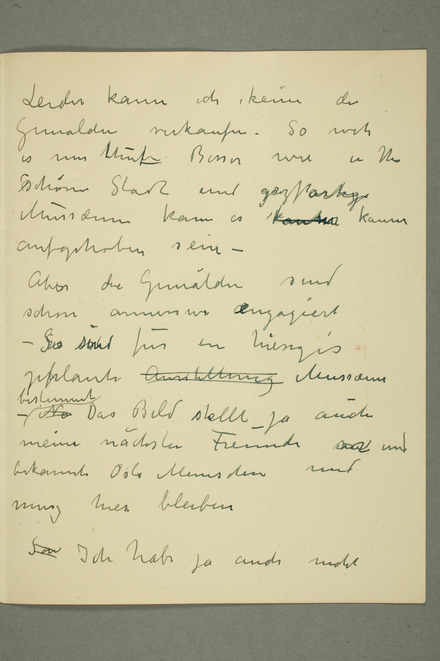 Leider kann ich keine der
Gemälden verkaufen. So weit
es mir Besser wäre in Ihr
schöne Stadt und
Mussæum kann es kaum
aufgehoben sein –
Aber die Gemälden sind
schon anderswo engagiert
– Sie sind für ein hiesiges
geplante Ausstellung Mussæum
bestemmt
– No Das Bild stellt ja auch
meine nächster Freunde und
bekannte Oslo Menschen und
muss hier bleiben
Ich habe ja auch nicht